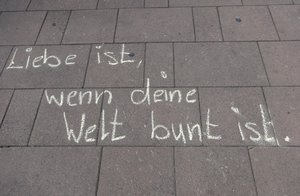 Liebe ist,
wenn deine
Welt bunt ist.